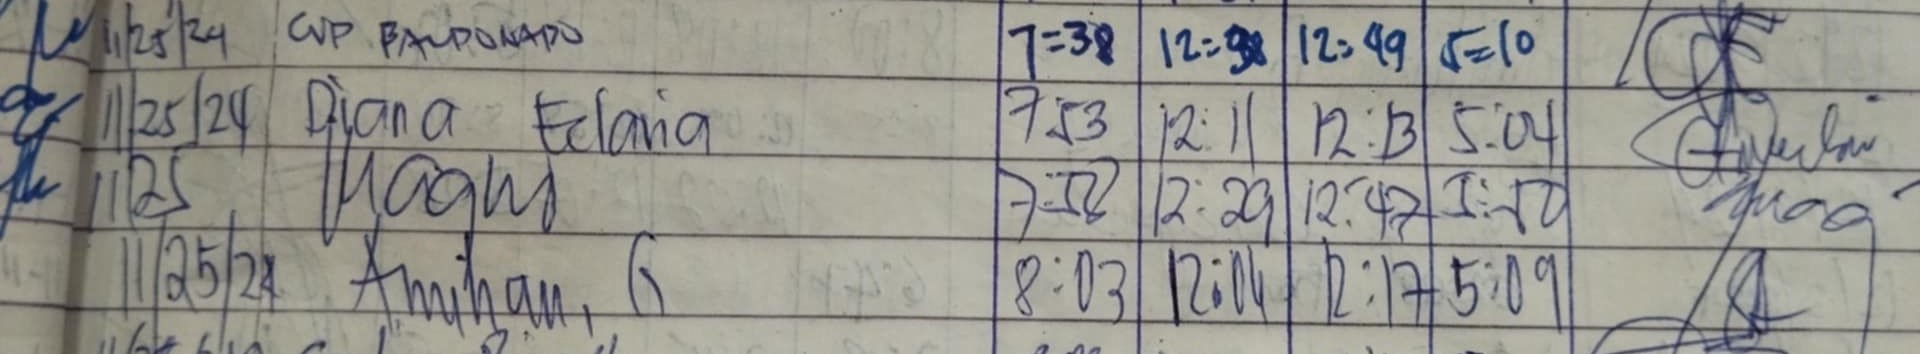 11/25/24 CVP BALDONADO 7=38 12=38 12:49 5=10
11/25/24 Diana Eclaria 7:53 12:11 12:13 5:04
11/25 7:58 12:29 12:47 5:50
11/25/24 Amihan, G 8:03 12:04 12:17 5:09